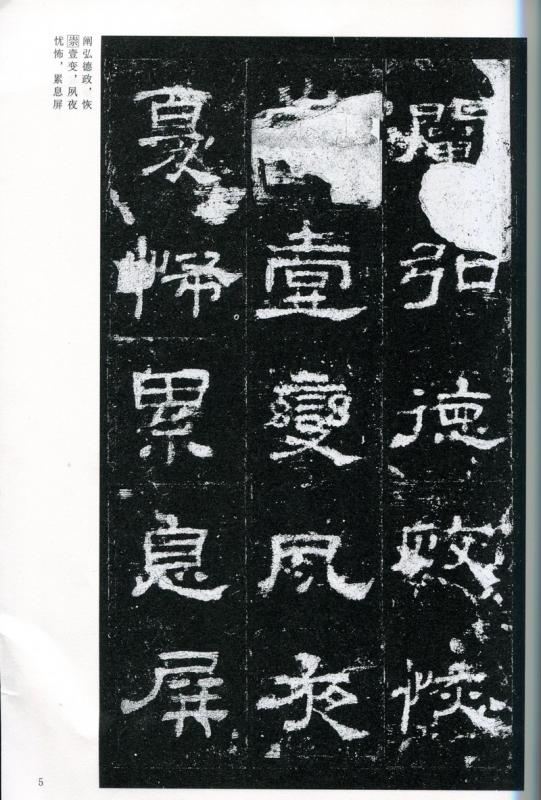 闡弘德政恢
壹變夙夜
憂怖累息屏
阐弘德政，恢
崇壹变，夙夜
忧怖，累息屏
5